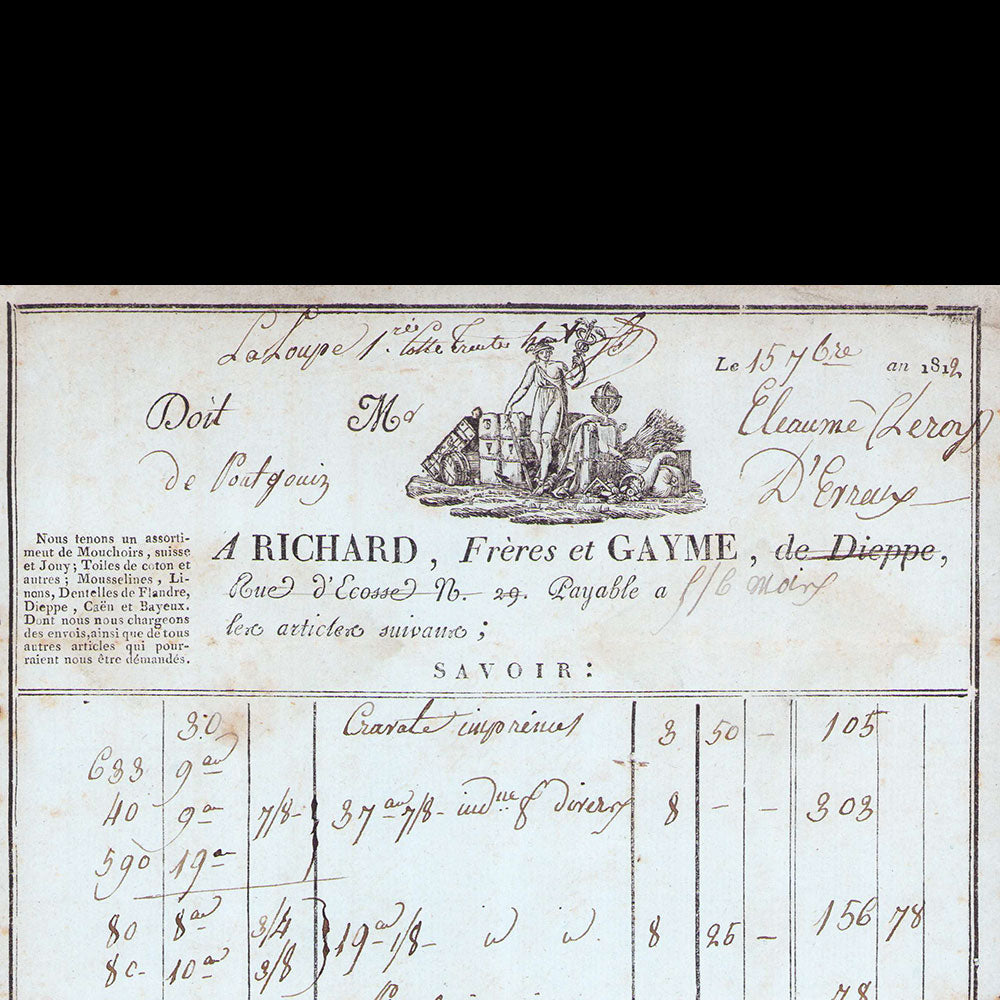 La Loupe 1.
Le 15 7bre an 1812
Doit Mr Eleaume (Leroy)
de Pontgouin D'Erraux
Nous tenons un assorti-
ment de Mouchoirs, suisse
et Jouy; Toiles de coton et
autres; Mousselines, Li-
nons, Dentelles de Flandre,
Dieppe, Caën et Bayeux.
Dont nous nous chargeons
des envois, ainsi que de tous
autres articles qui pour-
raient nous être démandés.
A RICHARD, Frères et GAYME, de Dieppe,
Rue d'Ecosse N. 29. Payable a 6 mois
les articles suivans;
SAVOIR:
30 Cravate imprimés 3 50 – 105
633 9 au
40 9 au 7/8 37 au 7/8 indne divers 8 – – 303
590 19 au
80 8 au 3/4 19 1/8 8 25 – 156 78
80 10 au 3/8
78